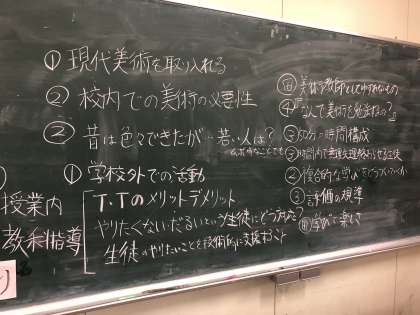 ① 現代美術を取り入れる
② 校内での美術の必要性
② 昔は色々できたが…若い人は?
① 学校外での活動
授業内
教科指導
T.Tのメリットデメリット
やりたくない・だるいという生徒にどう対応?
生徒のやりたいことを技術的に支援すること
美術の教師として
④「なんで美術を勉強するの?」
⑤ 50分の時間構成
② 複合的な学びをどう
③ 評価の規準
学びに楽しさ